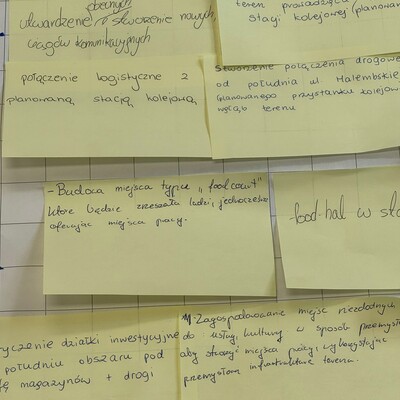 obecnych
utwardzenie / stworzenie nowych
ciągów komunikacyjnych
teren prowadząca
stacji kolejowej (planowan
połączenie logistyczne z
planowaną stacją kolejową
Stworzenie połączenia drogowe
od południa ul. Halembskie
(planowanego przystanku kolejow
wgłąb terenu
- Budowa miejsca typu „food court"
które będzie zrzeszało ludzi, jednocześnie
oferując miejsca pracy.
-food-hal w sta
yczenie działki inwestycyjnej
południu obszaru pod
magazynów + drogi
Zagospodarowanie miejsc niezdatnych
do usług, kultury w sposób przemysł
aby stworzyć miejsca pracy, wykorzystując
przemysłowa infrastrukturę terenu.